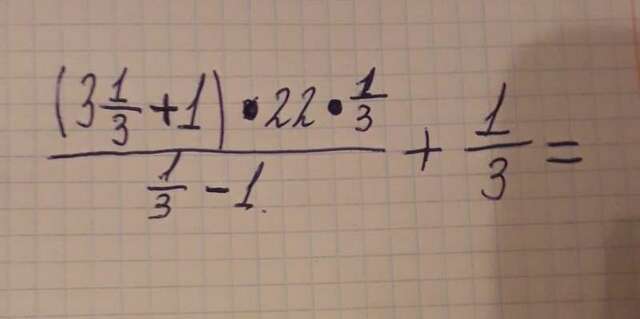 (3 1/3 + 1) • 22 • 1/3
1/3 - 1. + 1/3 =